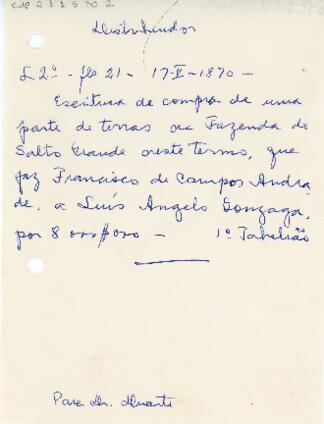 CMP 2.1.1.5.30.2
Distribuidor
L 2º - fls 21 - 17-V-1870 -
Escritura de compra de uma
parte de terras na Fazenda do
Salto Grande neste termo, que
faz Francisco de Campos Andra
de, a Luís Angelo Gonzaga,
por 8 000$000 - 1º Tabelião
Para Dr. Duarte